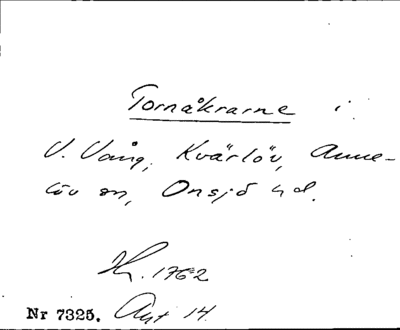 Tornåkrarne i
V. Vång, Kvärlöv, Anne-
löv sn, Onsjö hd.
H. 1762
Nr 7325. Akt 14.